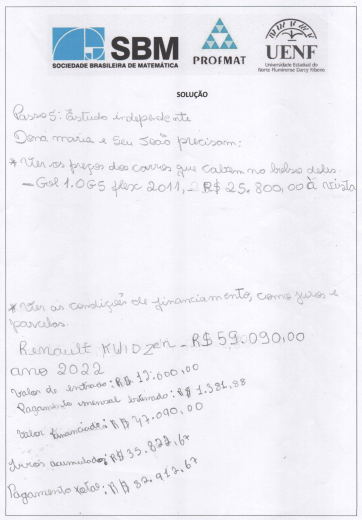 SBM
SOCIEDADE BRASILEIRA DE MATEMÁTICA
PROFMAT
UENF
Universidade Estadual do
Norte Fluminense Darcy Ribeiro
SOLUÇÃO
Passo 5: Estudo independente
Dona maria e Seu João precisam:
* Ver os preços dos carros que cabem no bolso deles.
- Gol 1.0 G5 flex 2011, - R$ 25.800,00 à vista
* Ver as condições de financiamento, como juros e
parcelas.
Renault KWID Zen - R$ 59.090,00
ano 2022
Valor de entrada: R$ 12.000,00
Pagamento mensal estimado: R$ 1.381,88
Valor financiado: R$ 47.090,00
Juros acumulados: R$ 35.822,67
Pagamento total: R$ 82.912,67